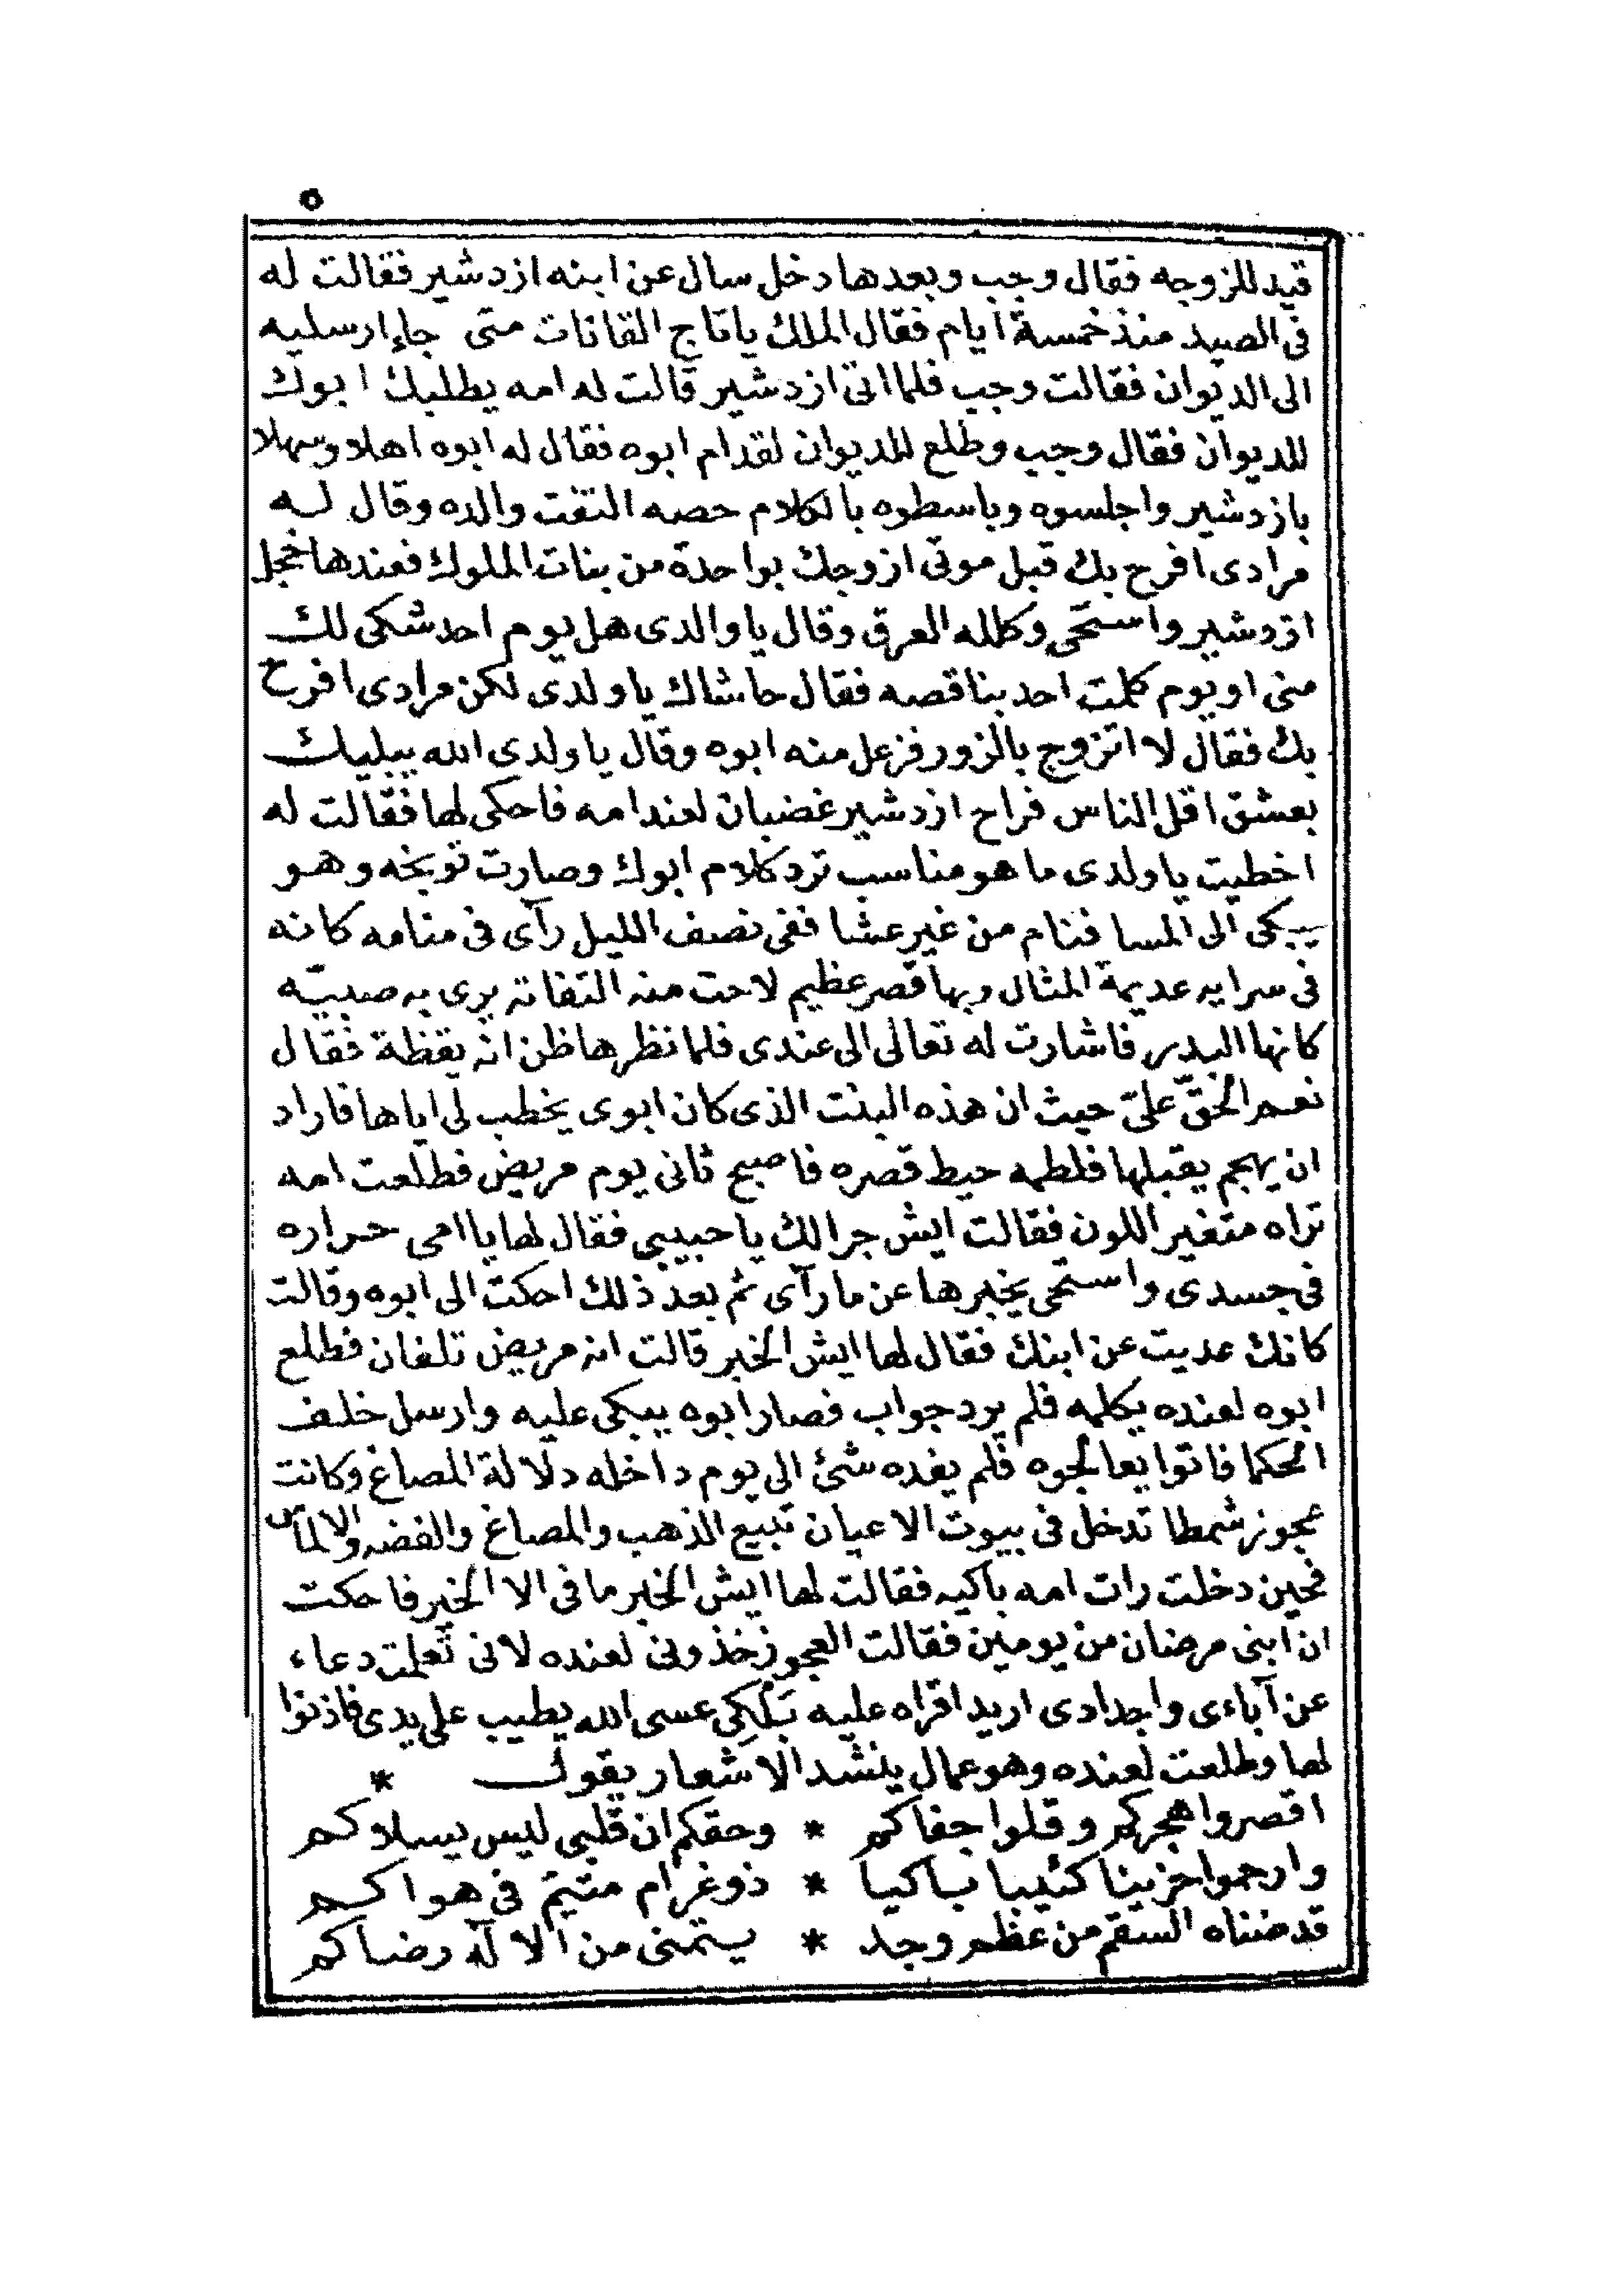 ٥
قيد للزوجه فقال وجب وبعدها دخل سال عن ابنه ازدشير فقالت له
فى الصيد منذ خمسة ايام فقال الملك ياتاج القانات متى جاء ارسليه
الى الديوان فقالت وجب فلما اتى ازدشير قالت له امه يطلبك ابوك
للديوان فقال وجب وطلع للديوان لقدام ابوه فقال له ابوه اهلا وسهلا
بازدشير واجلسوه وباسطوه بالكلام حصه التفت والده وقال له
مرادى افرح بك قبل موتى ازوجك بواحدة من بنات الملوك فعندها خجل
ازدشير واستحى وكلله العرق وقال ياوالدى هل يوم احد شكى لك
منى او يوم كلمت احد بناقصه فقال حاشاك ياولدى لكن مرادى افرح
بك فقال لا اتزوج بالزور فزعل منه ابوه وقال ياولدى الله يبليك
بعشق اقل الناس فراح ازدشير غضبان لعند امه فاحكى لها فقالت له
اخطيت ياولدى ما هو مناسب ترد كلام ابوك وصارت توبخه وهو
يبكى الى المسا فنام من غير عشا ففى نصف الليل رآى فى منامه كانه
فى سرايه عديمة المثال وبها قصر عظيم لاحت منه التفاته يرى به صبيّه
كانها البدر فاشارت له تعالى الى عندى فلما نظرها ظن انه يقظة فقال
نعم الحقّ علىّ حيث ان هذه البنت الذى كان ابوى يخطب لى اياها فاراد
ان يهجم يقبلها فلطمه حيط قصره فاصبح ثانى يوم مريض فطلعت امه
تراه متغير اللون فقالت ايش جرالك ياحبيبى فقال لها ياامى حراره
فى جسدى واستحى يخبرها عن ما رآى ثم بعد ذلك احكت الى ابوه وقالت
كانك عديت عن ابنك فقال لها ايش الخبر قالت انه مريض تلفان فطلع
ابوه لعنده يكلمه فلم يرد جواب فصار ابوه يبكى عليه وارسل خلف
الحكما فاتوا يعالجوه فلم يفده شئ الى يوم داخله دلالة المصاغ وكانت
عجوز شمطا تدخل فى بيوت الاعيان تبيع الذهب والمصاغ والفضه والالماس
فحين دخلت رات امه باكيه فقالت لها ايش الخبر ما فى الا الخير فاحكت
ان ابنى مرضان من يومين فقالت العجوز خذونى لعنده لانى تعلمت دعاء
عن آباءى واجدادى اريد اقراه عليه بَلْكِى عسى الله يطيب على يدى فاذنوا
لها وطلعت لعنده وهو عمال ينشد الاشعار يقول *
اقصروا هجركم وقلوا جفاكم * وحقكم ان قلبى ليس يسلاوكم
وارحموا حزينا كئيبا باكيا * ذو غرام متيم فى هواكم
قد ضناه السقم من عظم وجد * يتمنى من الاله رضاكم